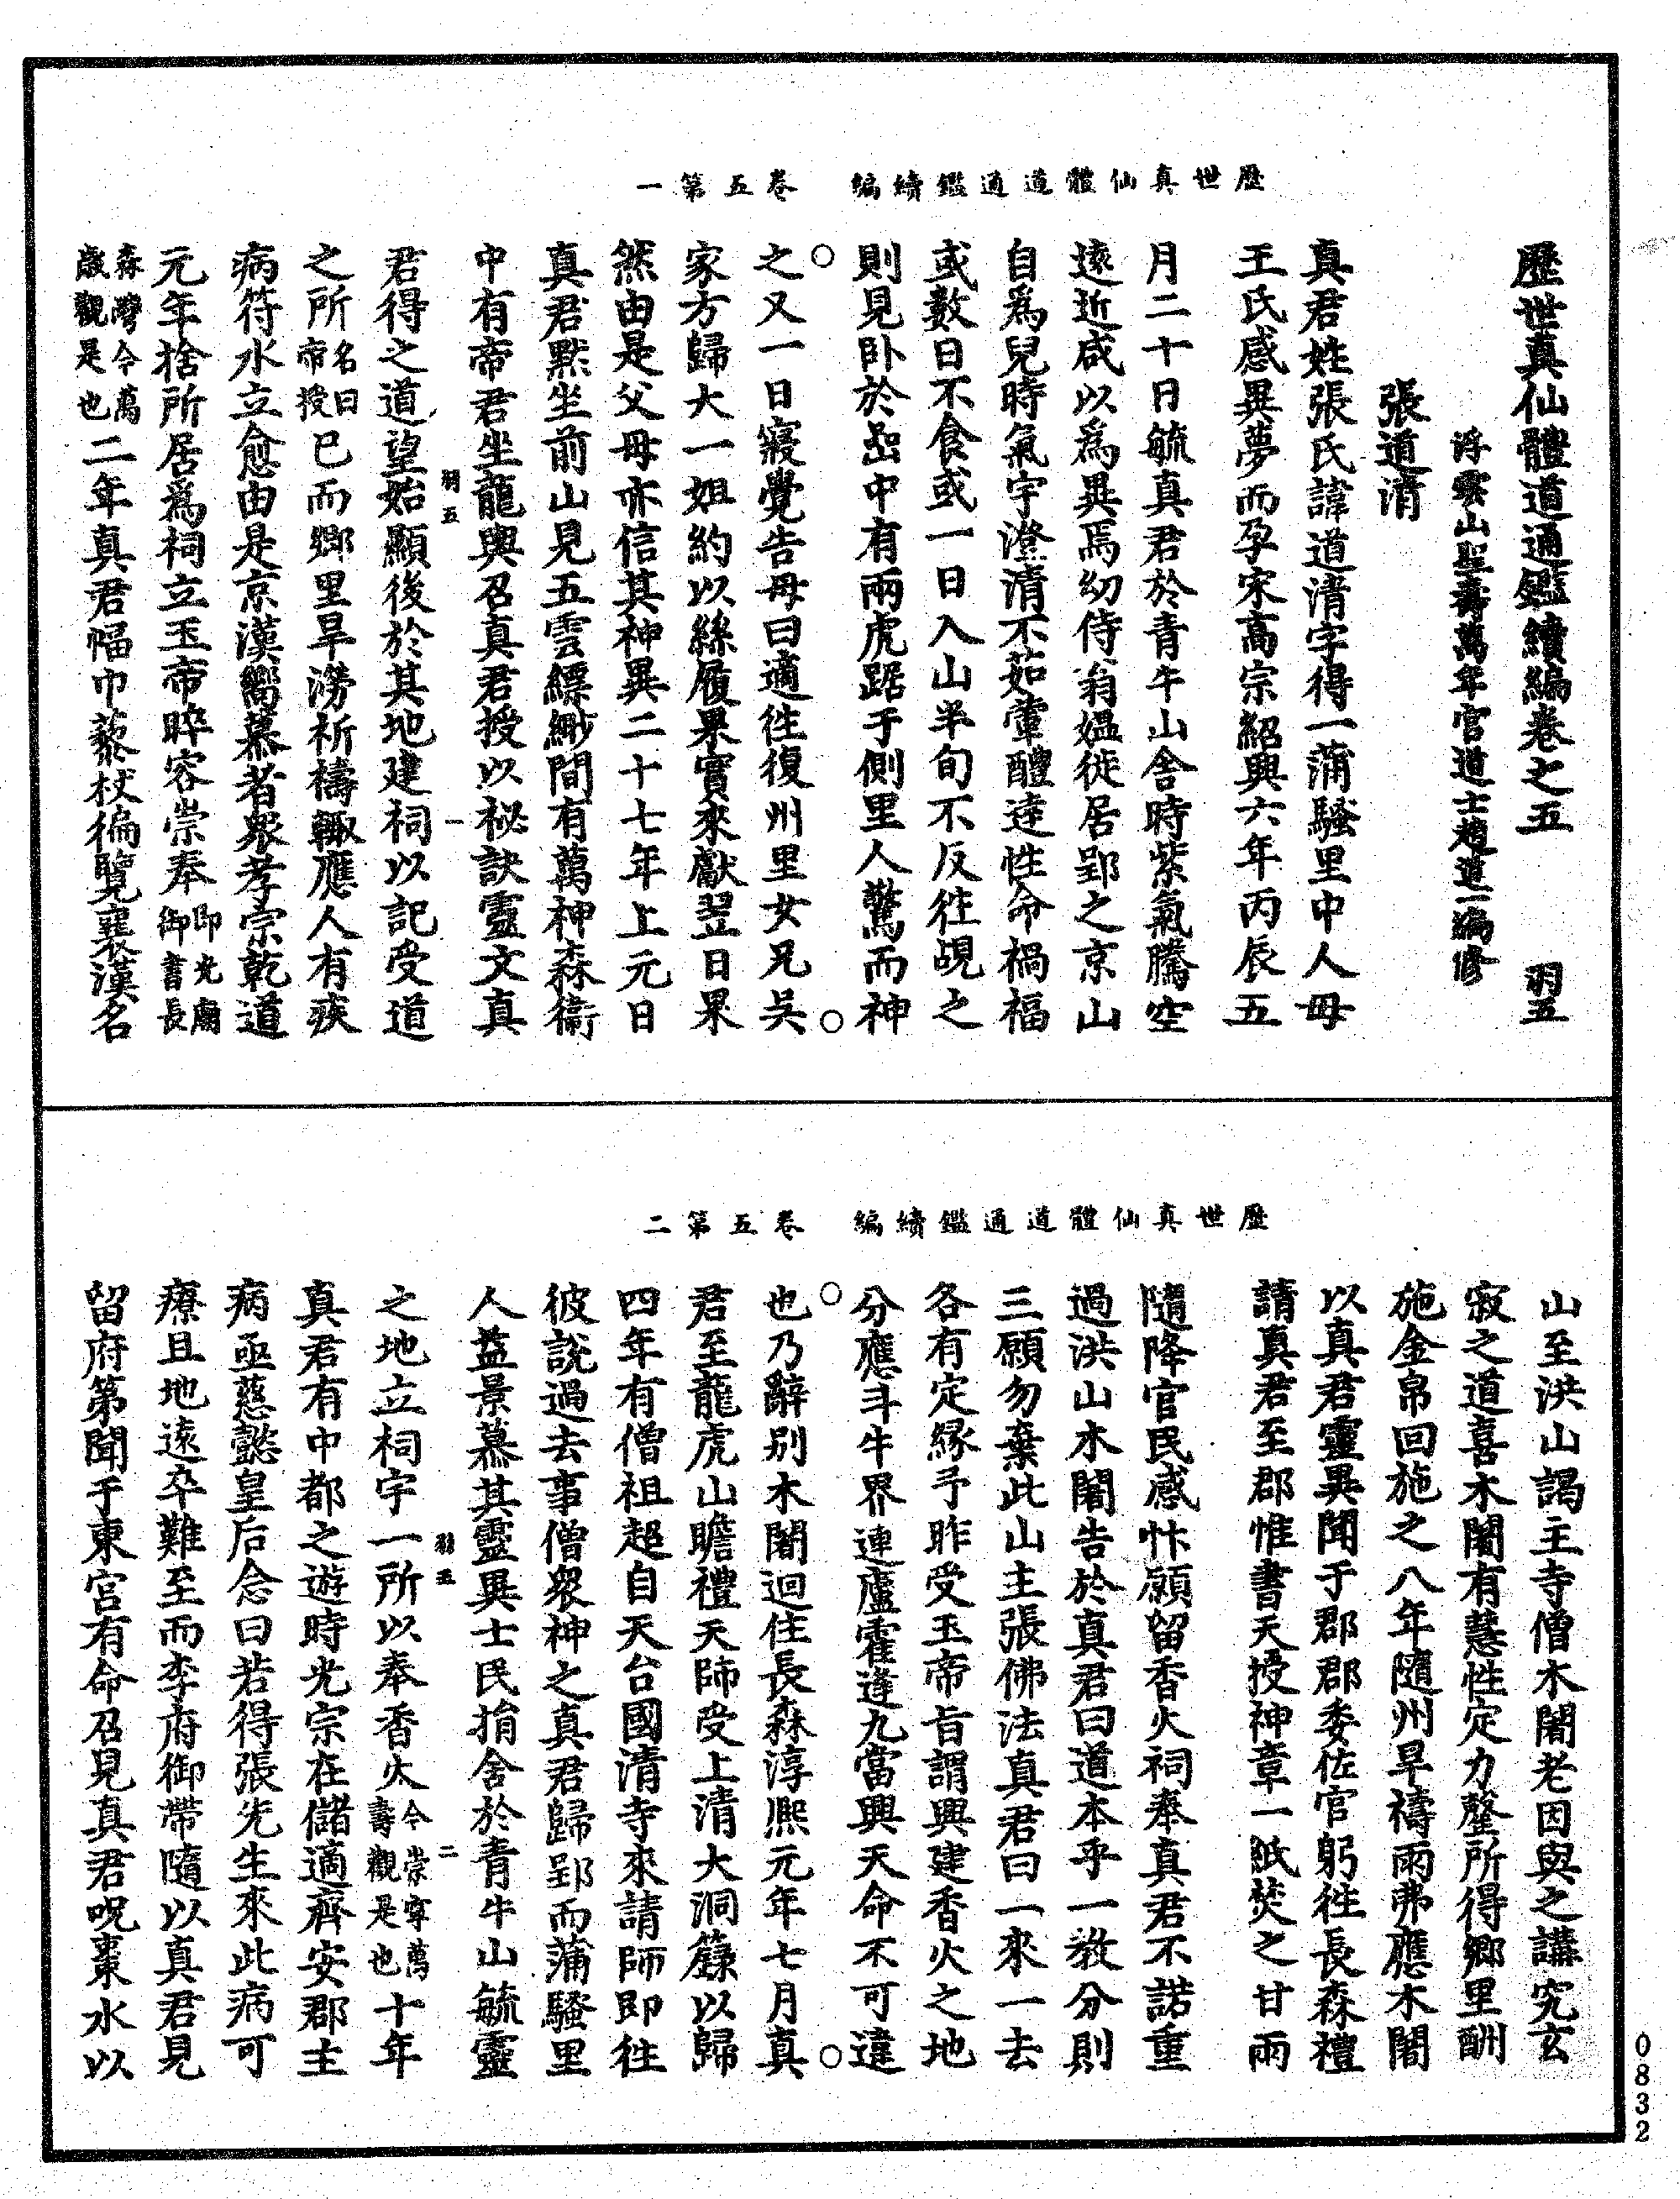 歷世真仙體道通鑑續編　卷五第一
歷世真仙體道通鑑續編卷之五　羽五
浮雲山聖壽萬年宮道士趙道一編修
張道清
真君姓張氏諱道清字得一蒲騷里中人毋
王氏感異夢而孕宋高宗紹興六年丙辰五
月二十日毓真君於青牛山舍時紫氣騰空
遠近咸以爲異焉幼侍翁媼徙居郢之京山
自爲兒時氣宇澄清不茹葷醴達性命禍福
或數日不食或一日入山半旬不反往覘之
則見卧於嵒中有兩虎踞于側里人驚而神
之又一日寢覺告母曰適往復州里女兄吳
家方歸大一姐約以絲履果實來獻翌日果
然由是父母亦信其神異二十七年上元日
真君默坐前山見五雲縹緲間有萬神森衛
中有帝君坐龍輿召真君授以祕訣靈文真
羽五　一
君得之道望始顯後於其地建祠以記受道
之所名曰帝授巳而鄉里旱澇祈禱輙應人有疾
病符水立愈由是京漢嚮慕者衆孝宗乾道
元年捨所居爲祠立玉帝睟容崇奉即光廟御書長
森灣今萬歲觀是也二年真君幅巾藜杖徧覽襄漢名
歷世真仙體道通鑑續編　卷五第二
山至洪山謁主寺僧木闍老因與之講究玄
寂之道喜木闍有慧性定力罄所得鄉里酬
施金帛回施之八年隨州旱禱雨弗應木闍
以真君靈異聞于郡郡委佐官躬往長森禮
請真君至郡惟書天授神章一紙焚之甘雨
隨降官民感忭願留香火祠奉真君不諾重
過洪山木闍告於真君曰道本乎一教分則
三願勿棄此山主張佛法真君曰一來一去
各有定緣予昨受玉帝旨謂興建香火之地
分應斗牛界連廬霍逢九當興天命不可違
也乃辭別木闍迴住長森淳熙元年七月真
君至龍虎山瞻禮天師受上清大洞籙以歸
四年有僧祖超自天台國清寺來請師即往
彼說過去事僧衆神之真君歸郢而蒲騷里
人益景慕其靈異士民捐舍於青牛山毓靈
羽五　二
之地立祠宇一所以奉香火今崇寧萬壽觀是也十年
真君有中都之遊時光宗在儲適齊安郡主
病亟慈懿皇后念曰若得張先生來此病可
療且地遠卒難至而李府御帶隨以真君見
留府第聞于東宮有命召見真君呪棗水以
0832